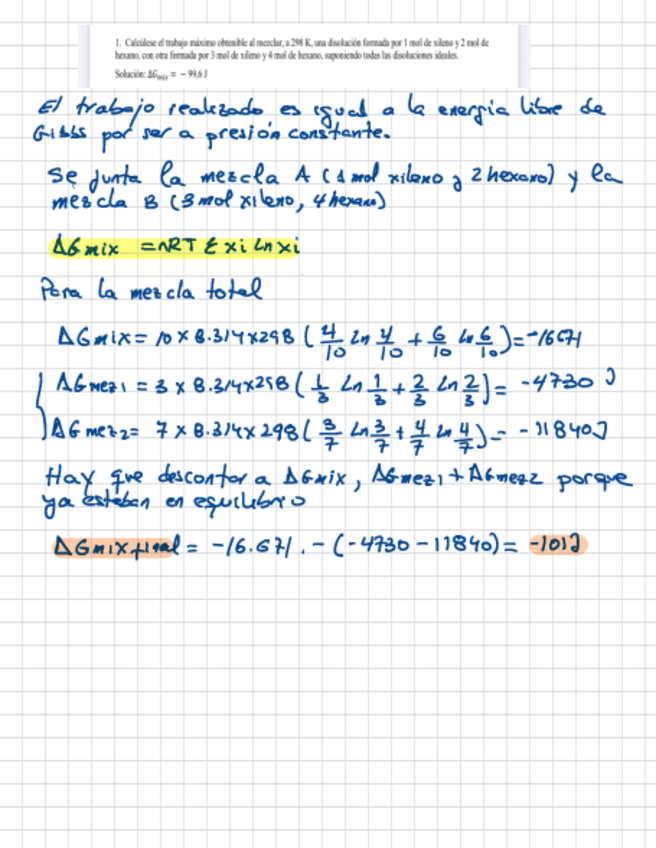 1. Calcúlese el trabajo máximo obtenible al mezclar, a 298 K, una disolución formada por 1 mol de xileno y 2 mol de
hexano, con otra formada por 3 mol de xileno y 4 mol de hexano, suponiendo todas las disoluciones ideales.
Solución: ΔGmix = − 99,6 J
El trabajo realizado es igual a la energía libre de
Gibbs por ser a presión constante.
Se junta la mezcla A (1 mol xileno y 2 hexano) y la
mezcla B (3 mol xileno, 4 hexano)
ΔG mix = nRT Σ xi Ln xi
Para la mezcla total
ΔGmix = 10 × 8.314×298 ( 4/10 Ln 4/10 + 6/10 Ln 6/10 ) = -16671
ΔG mez1 = 3 × 8.314×298 ( 1/3 Ln 1/3 + 2/3 Ln 2/3 ) = -4730 J
ΔG mez2 = 7 × 8.314× 298 ( 3/7 Ln 3/7 + 4/7 Ln 4/7 ) = -11840J
Hay que descontar a ΔGmix, ΔGmez1 + ΔGmez2 porque
ya estaban en equilibrio
ΔGmix final = -16.671. - (-4730 - 11840) = -101J